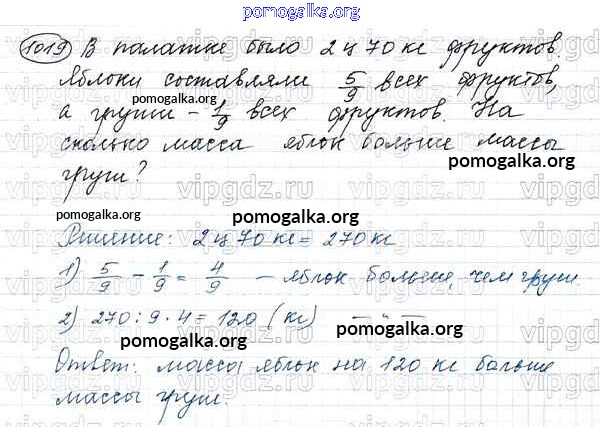 pomogalka.org
1019 В палатке было 2 ц 70 кг фруктов.
Яблоки составляли 5/9 всех фруктов,
pomogalka.org
а груши - 1/9 всех фруктов. На
pomogalka.org
сколько масса яблок больше массы
pomogalka.org
груш?
vipgdz.ru vipgdz.ru vipgdz.ru
pomogalka.org pomogalka.org
Решение: 2 ц 70 кг = 270 кг
1) 5/9 - 1/9 = 4/9 - яблок больше, чем груш.
pomogalka.org
2) 270 : 9 · 4 = 120 (кг) — " —
pomogalka.org
Ответ: масса яблок на 120 кг больше
pomogalka.org
массы груш.